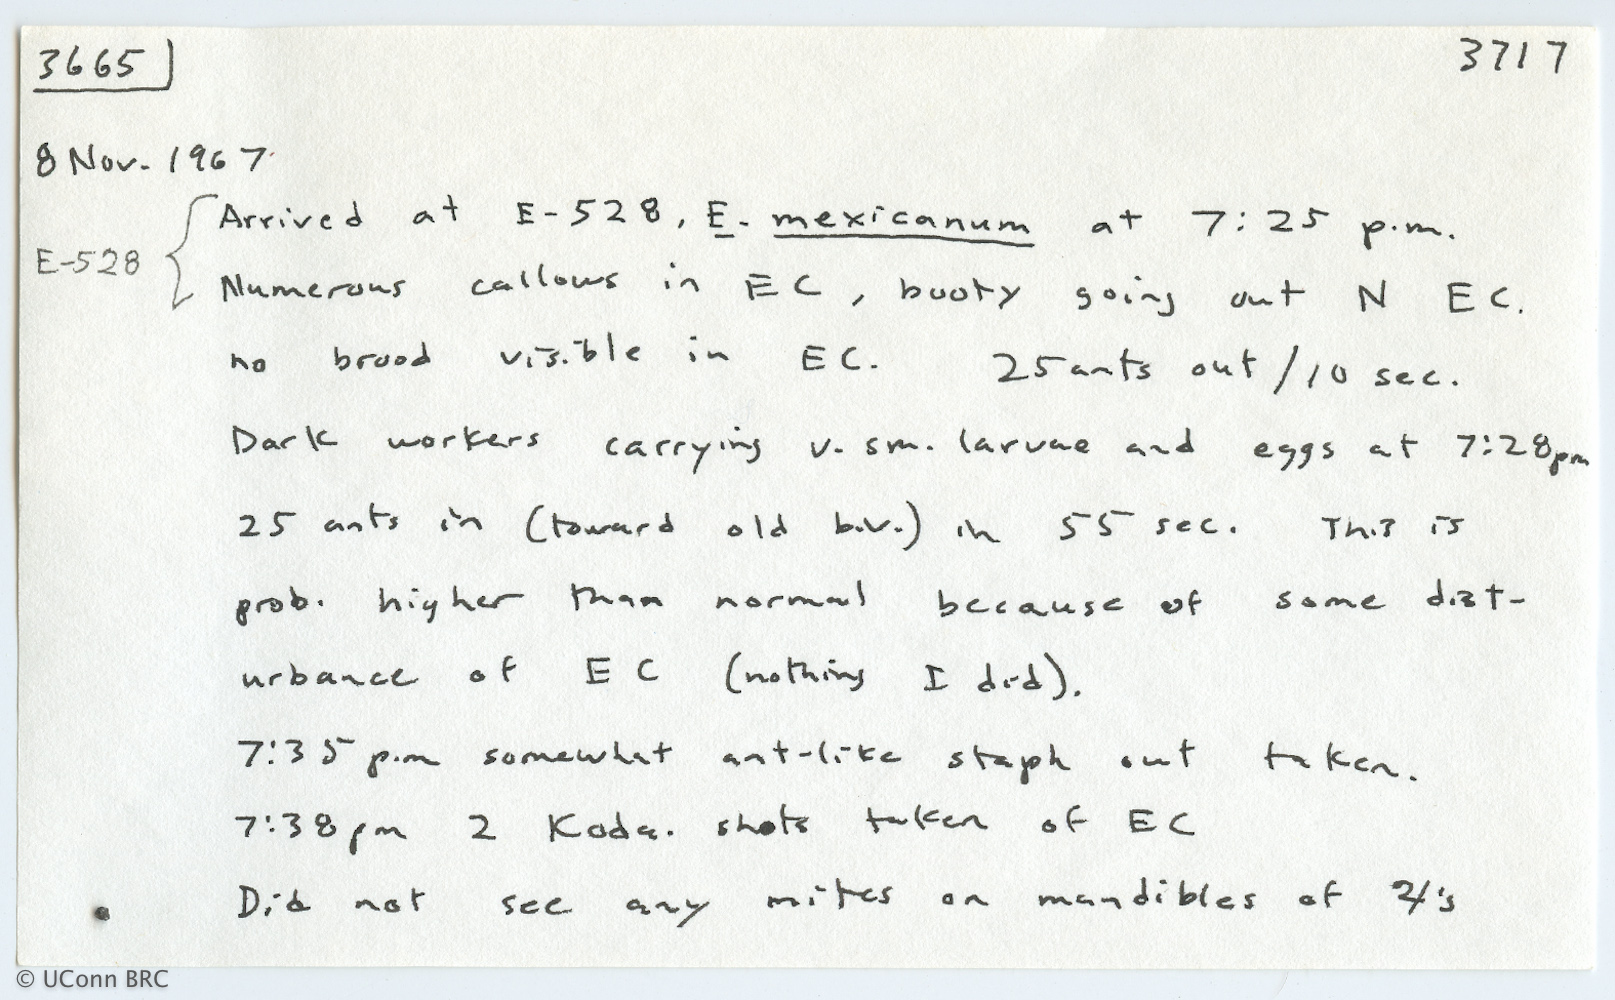 3665 3717
8 Nov. 1967
Arrived at E-528, E. mexicanum at 7:25 p.m.
E-528
Numerous callows in EC, booty going out N EC.
no brood visible in EC. 25 ants out/10 sec.
Dark workers carrying v. sm. larvae and eggs at 7:28pm
25 ants in (toward old biv.) in 55 sec. This is
prob. higher than normal because of some dist-
urbance of EC (nothing I did).
7:35 p.m somewhat ant-like staph out taken.
7:38pm 2 Koda. shots taken of EC
Did not see any mites on mandibles of
© UConn BRC